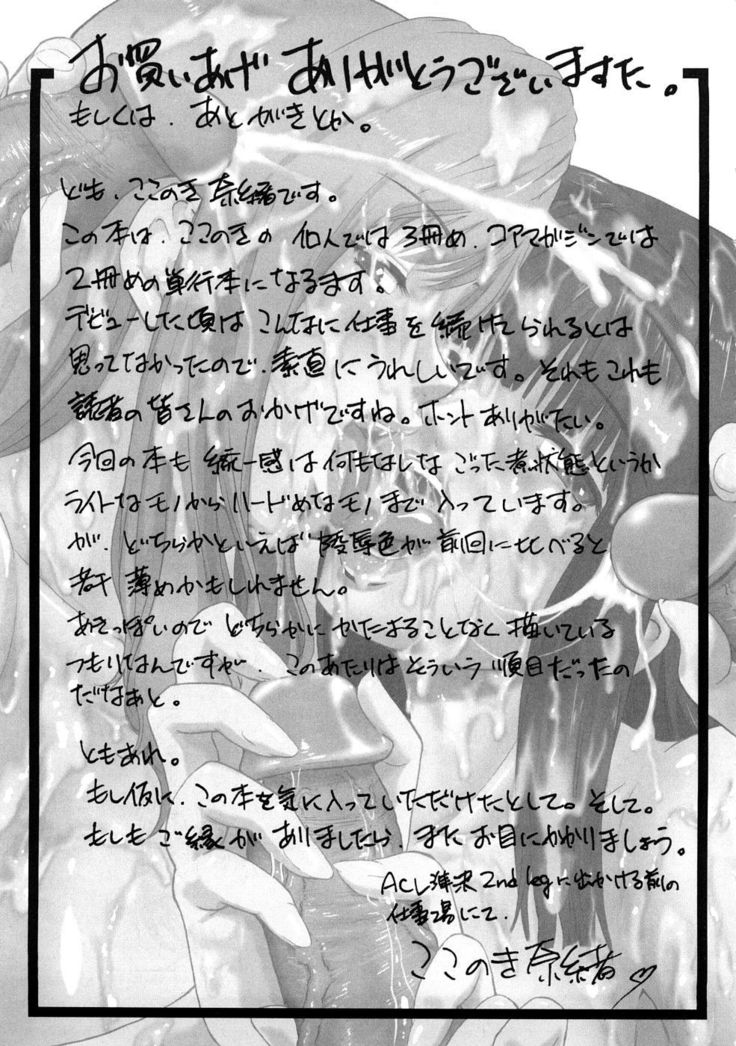 お買いあげ ありがとうございますた。
もしくは、あとがきとか。
ども、ここのき奈緒です。
この本は、ここのきの 個人では 3冊め、コアマガジンでは
2冊めの単行本になるます。
デビューした頃は こんなに仕事を続けてられるとは
思ってなかったので、素直にうれしいです。それもこれも
読者の皆さんのおかげですね。ホント ありがたい。
今回の本も 統一感は何もなしな ごった煮状態というか
ライトなモノから ハードめなモノまで 入っています。
が、どちらかといえば 陵辱色が前回に比べると
若干 薄めかもしれません。
あきっぽいので どちらかに かたまることなく 描いている
つもりなんですが、このあたりはそういう 順目だったの
だなぁと。
ともあれ。
もし仮に、この本を気に入っていただけたとして。そして。
もしも ご縁が ありましたら、また お目にかかりましょう。
ACL準決 2nd legに出かける前の
仕事場にて、
ここのき奈緒♡